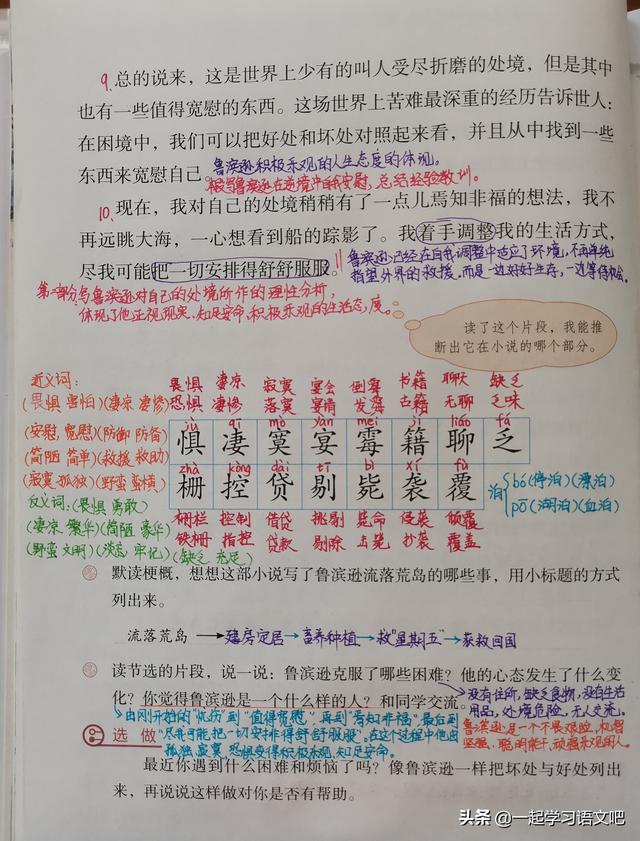 9. 总的说来，这是世界上少有的叫人受尽折磨的处境，但是其中
也有一些值得宽慰的东西。这场世界上苦难最深重的经历告诉世人：
在困境中，我们可以把好处和坏处对照起来看，并且从中找到一些
东西来宽慰自己。
鲁滨逊积极乐观的人生态度的体现。
描写鲁滨逊在逆境中自我安慰，总结经验教训。
10. 现在，我对自己的处境稍稍有了一点儿焉知非福的想法，我不
再远眺大海，一心想看到船的踪影了。我着手调整我的生活方式，
尽我可能把一切安排得舒舒服服。
鲁滨逊已经在自我调整中适应了环境，不再单纯
指望外界的救援，而是一边好好生存，一边等待机会。
第二部分：写鲁滨逊对自己的处境所作的理性分析，
体现了他正视现实、知足安命、积极乐观的生活态度。
读了这个片段，我能推
断出它在小说的哪个部分。
近义词：
(畏惧 害怕)(凄凉 凄惨)
(安慰 宽慰)(防御 防备)
(简陋 简单)(救援 救助)
(寂寞 孤独)(野蛮 蛮横)
反义词：(畏惧 勇敢)
(凄凉 繁华)(简陋 豪华)
(野蛮 文明)(淡忘 牢记)(缺乏 充足)
畏惧 凄凉 寂寞 宴会 倒霉 书籍 聊天 缺乏
恐惧 凄惨 落寞 宴请 发霉 古籍 无聊 乏味
jù qī mò yàn méi jí liáo fá
惧 凄 寞 宴 霉 籍 聊 乏
zhà kòng dài tī bì xí fù
栅 控 贷 剔 毙 袭 覆
栅栏 控制 借贷 挑剔 毙命 侵袭 倾覆
铁栅 指控 贷款 剔除 击毙 抄袭 覆盖
泊 bó (停泊)(漂泊)
pō (湖泊)(血泊)
默读梗概，想想这部小说写了鲁滨逊流落荒岛的哪些事，用小标题的方式
列出来。
流落荒岛→建房定居→畜养种植→救“星期五”→获救回国
读节选的片段，说一说：鲁滨逊克服了哪些困难？他的心态发生了什么变
化？你觉得鲁滨逊是一个什么样的人？和同学交流。
没有住所，缺乏食物，没有生活
用品，处境危险，无人交流。
由刚开始的“忧伤”到“值得宽慰”，再到“焉知非福”，最后到
“尽我可能把一切安排得舒舒服服”。在这个过程中他由
孤独、寂寞、恐惧变得积极乐观、知足安命。
鲁滨逊是一个不畏艰险、机智
坚强、聪明能干、顽强乐观的人。
选做
最近你遇到什么困难和烦恼了吗？像鲁滨逊一样把坏处与好处列出
来，再说说这样做对你是否有帮助。
头条 @一起学习语文吧